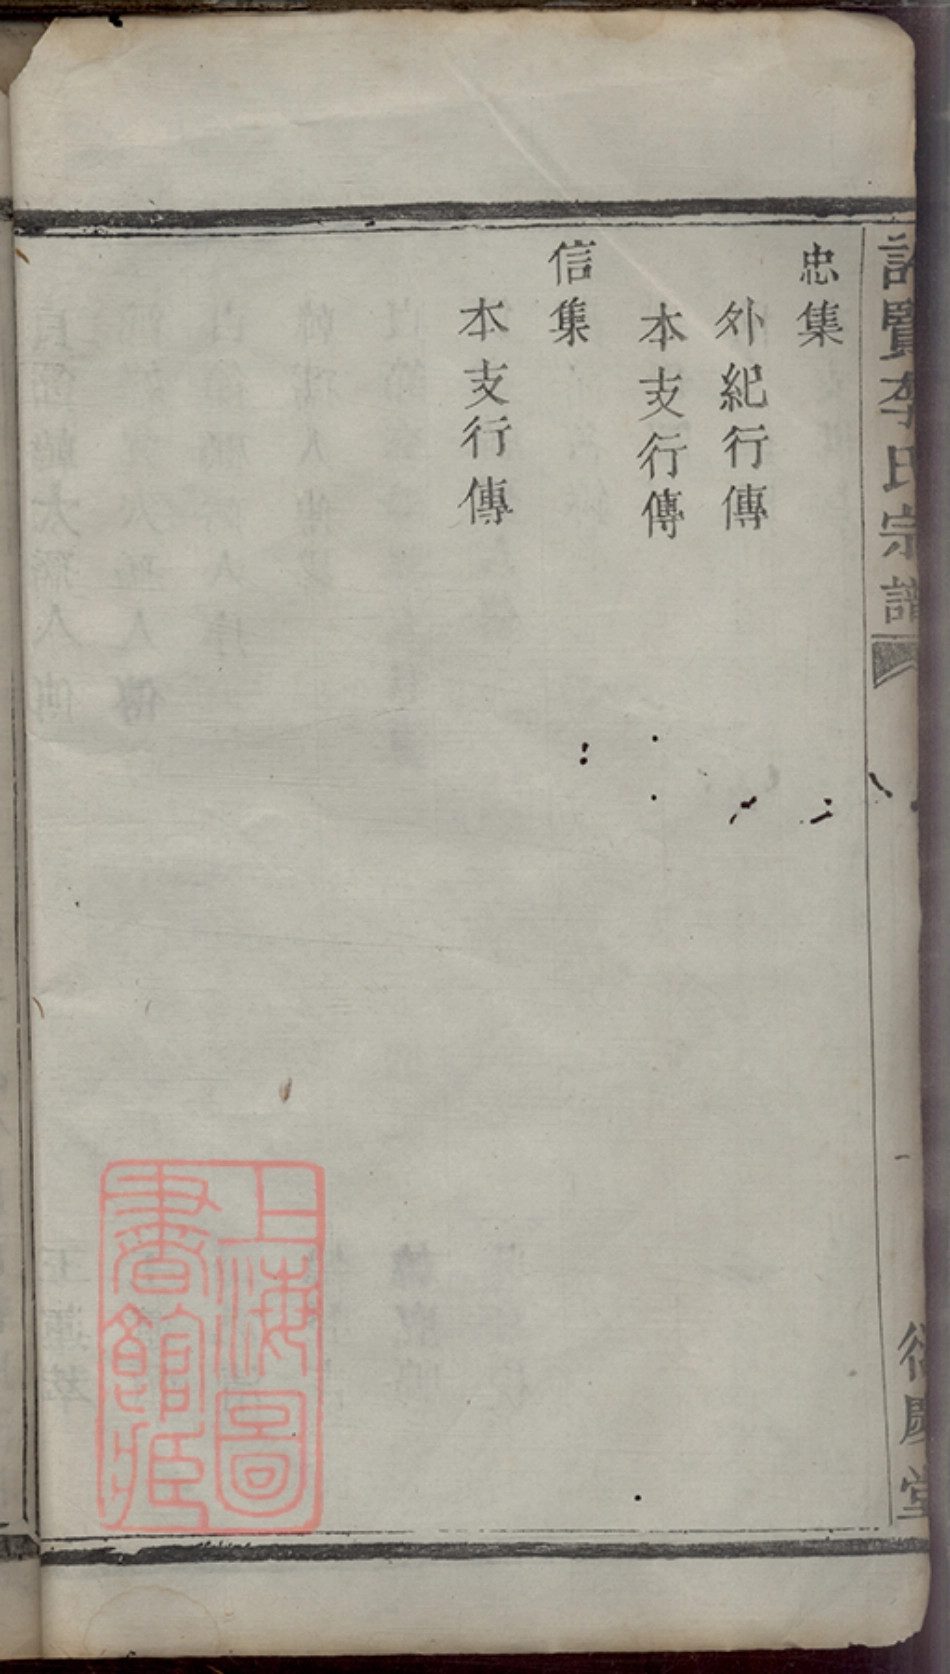 賢李氏宗譜
衍慶堂
忠集
外紀行傳
本支行傳
信集
本支行傳
上海圖
書館藏